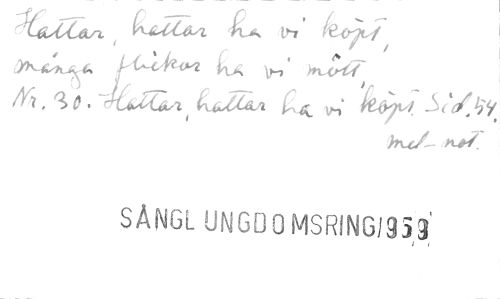 Hattar, hattar ha vi köpt,
många flickor ha vi mött,
Nr. 30. Hattar, hattar ha vi köpt. Sid. 54.
med not.
SÅNGL UNGDOMSRING 1959